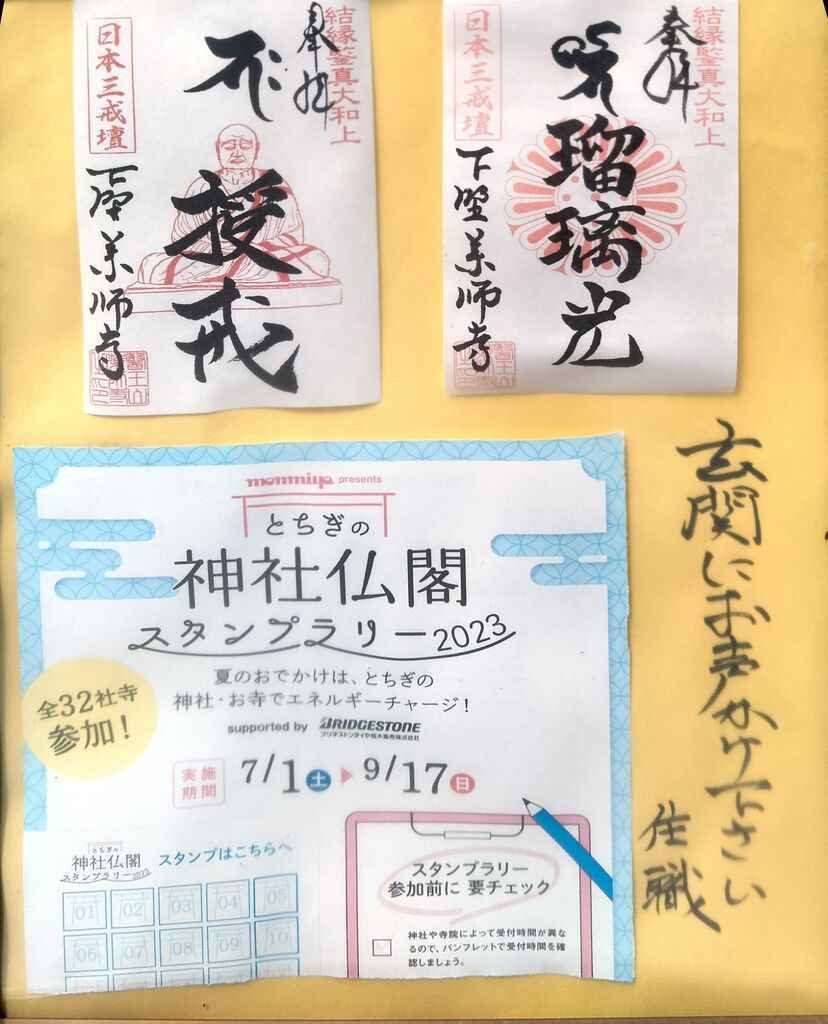 奉拝
結縁鑒真大和上
授戒
日本三戒壇
下野薬師寺
奉拝
結縁鑒真大和上
瑠璃光
日本三戒壇
下野薬師寺
monmiya presents
とちぎの
神社仏閣
スタンプラリー2023
夏のおでかけは、とちぎの
神社・お寺でエネルギーチャージ!
全32社寺
参加!
supported by BRIDGESTONE
ブリヂストンタイヤ栃木販売株式会社
実施
期間
7/1土▶9/17日
とちぎの
神社仏閣
スタンプラリー2023
スタンプはこちらへ
01 02 03 04 05
06 07 08 09 10
スタンプラリー
参加前に 要チェック
神社や寺院によって受付時間が異な
るので、パンフレットで受付時間を確
認しましょう。
玄関にお声かけ下さい
住職